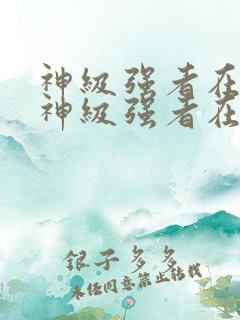 神级强者在
神级强者在
银子多多
未经同意禁止转载